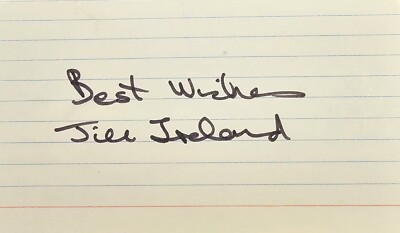 Best Wishes
Jill Ireland